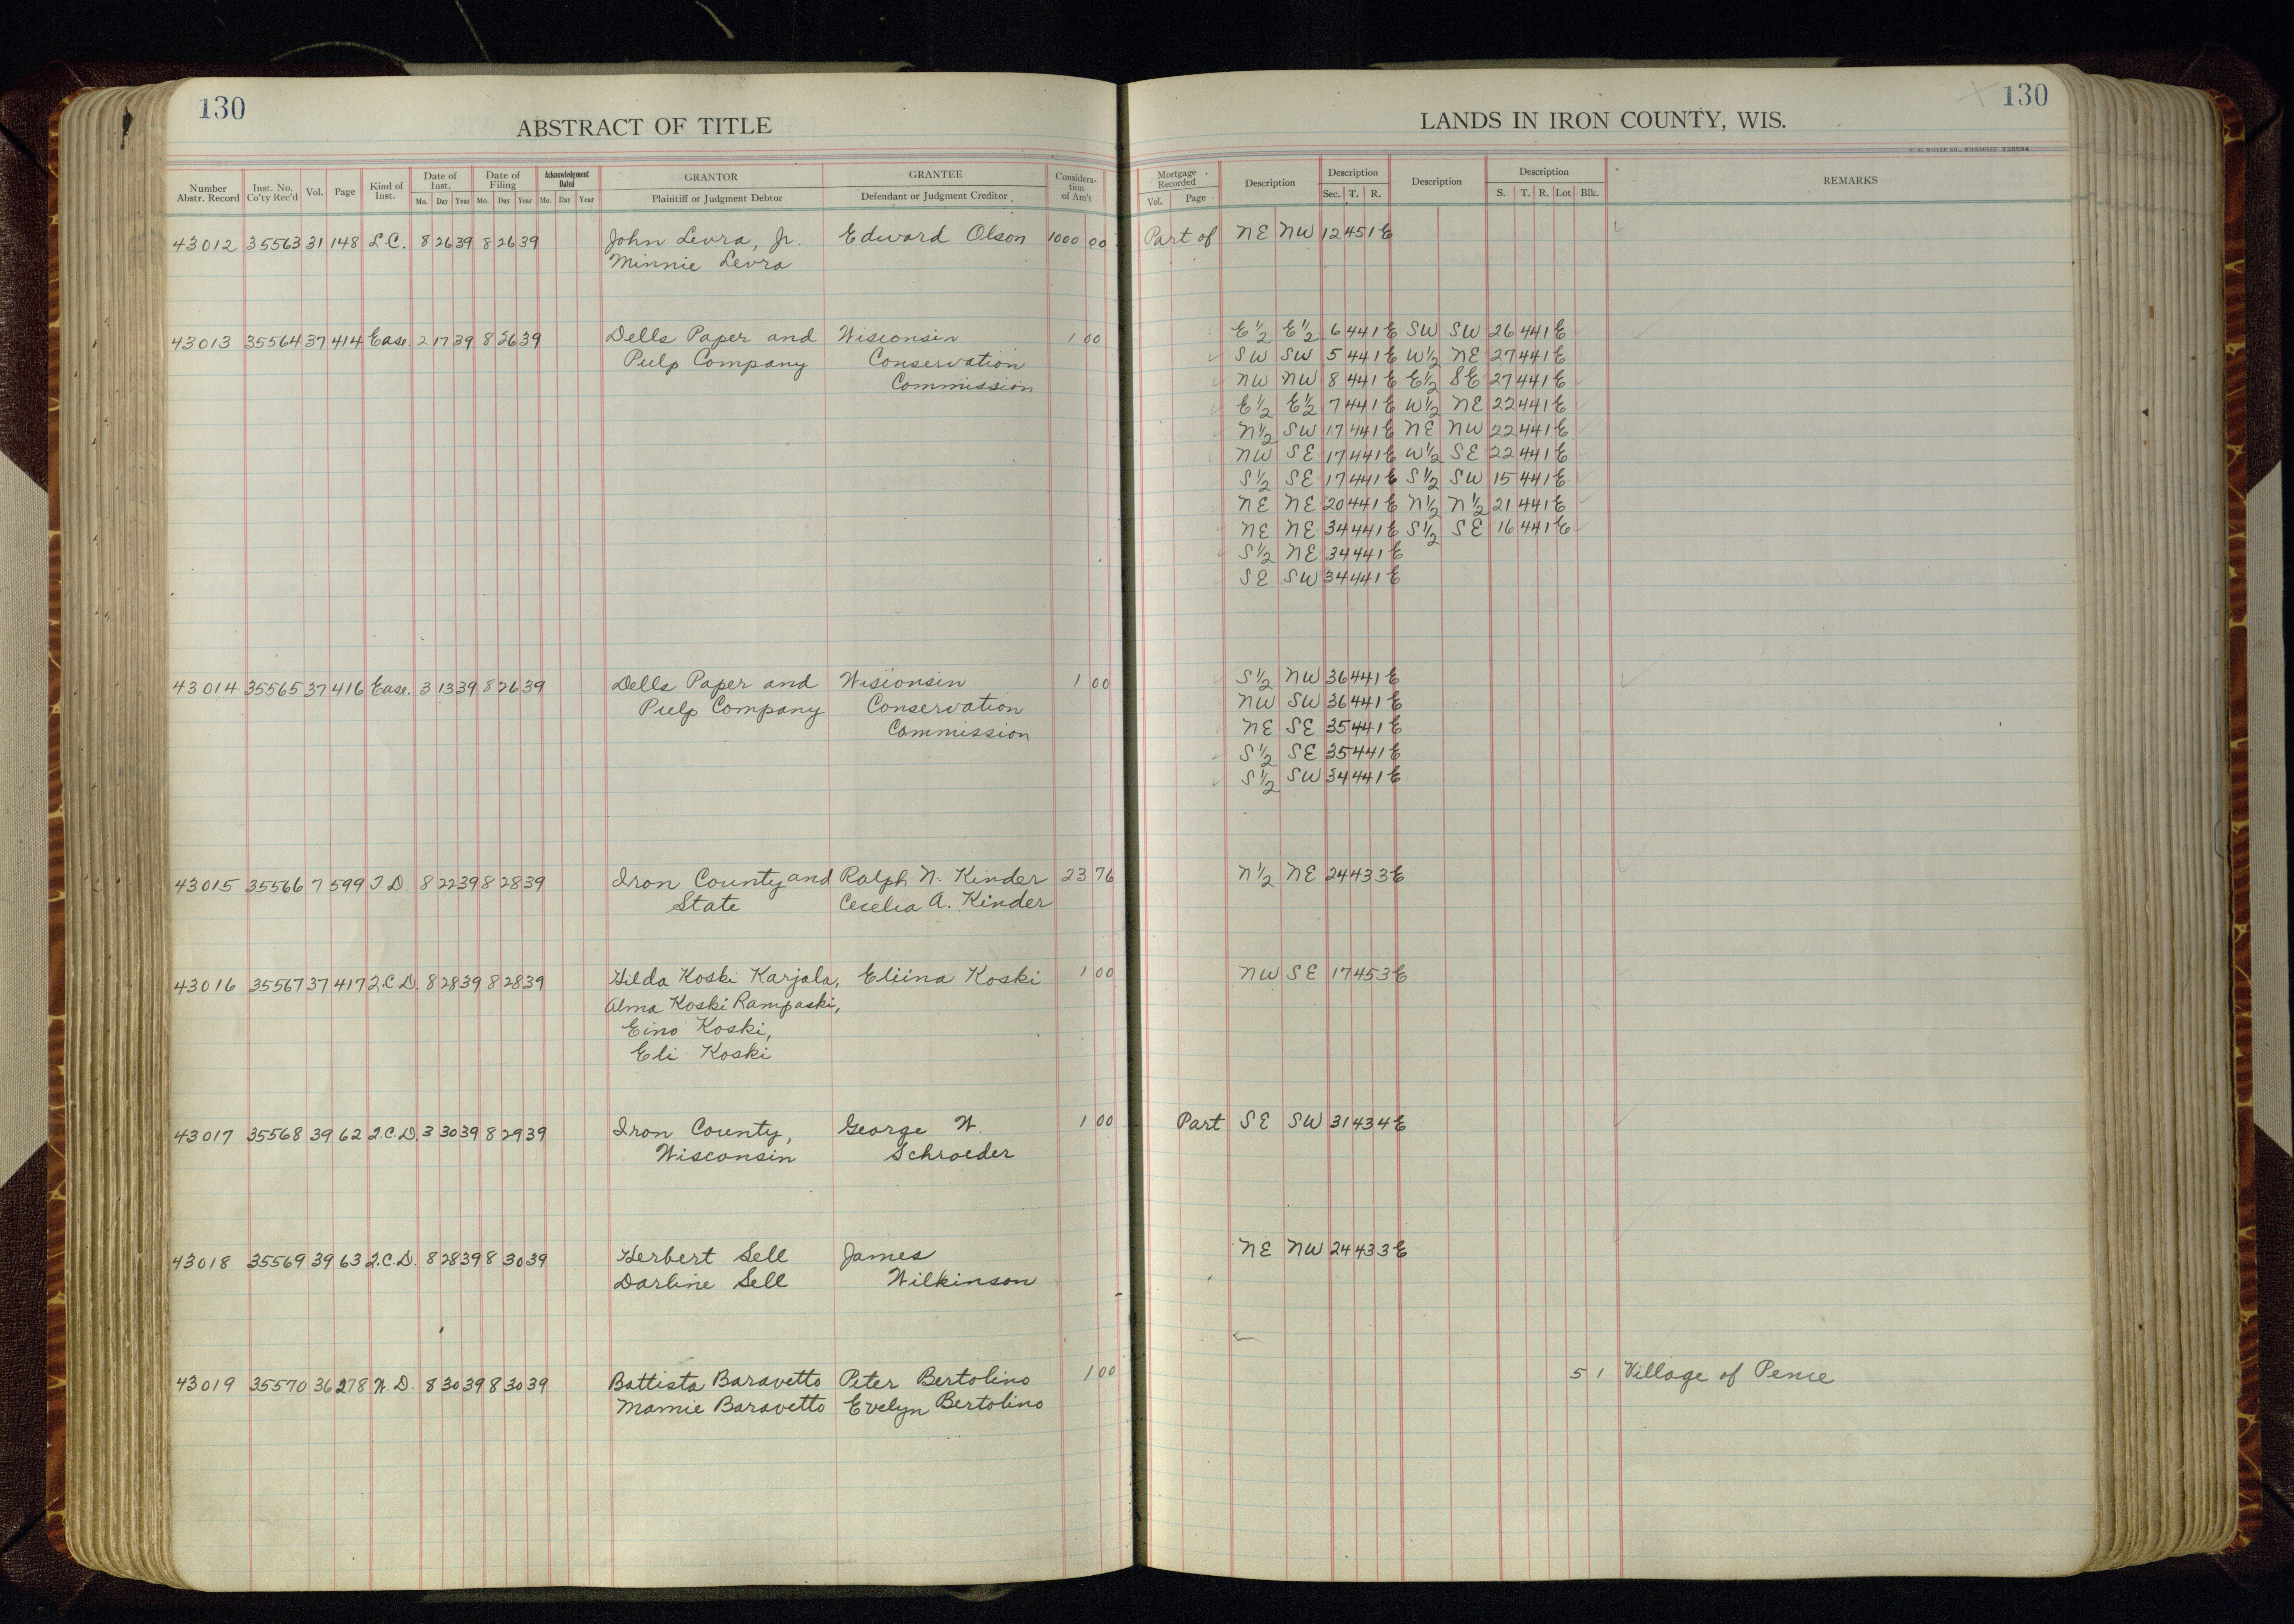 130
ABSTRACT OF TITLE
Number Abstr. Record Inst. No. Co'ty Rec'd Vol. Page Kind of Inst. Date of Inst. Mo. Day Year Date of Filing Mo. Day Year Acknowledgment Dated Mo. Day Year GRANTOR Plaintiff or Judgment Debtor GRANTEE Defendant or Judgment Creditor Considera-tion of Am't
43012 35563 31 148 L.C. 8 26 39 8 26 39 John Levra, Jr. Edward Olson 1000 00
Minnie Levra
43013 35564 37 414 Ease. 2 17 39 8 26 39 Dells Paper and Wisconsin 1 00
Pulp Company Conservation
Commission
43014 35565 37 416 Ease. 3 13 39 8 26 39 Dells Paper and Wisconsin 1 00
Pulp Company Conservation
Commission
43015 35566 7 599 T.D. 8 22 39 8 28 39 Iron County and Ralph N. Kinder 23 76
State Cecelia A. Kinder
43016 35567 37 417 Q.C.D. 8 28 39 8 28 39 Hilda Koski Karjala, Eliina Koski 1 00
Alma Koski Rampaski,
Eino Koski,
Eli Koski
43017 35568 39 62 Q.C.D. 3 30 39 8 29 39 Iron County, George W. 1 00
Wisconsin Schroeder
43018 35569 39 63 Q.C.D. 8 28 39 8 30 39 Herbert Sell James
Darline Sell Wilkinson
43019 35570 36 278 W.D. 8 30 39 8 30 39 Battista Baravetto Peter Bertolino 1 00
Mamie Baravetto Evelyn Bertolino
130
LANDS IN IRON COUNTY, WIS.
H. C. MILLER CO., MILWAUKEE Y28594
Mortgage Recorded Vol. Page Description Description Sec. T. R. Description Description S. T. R. Lot Blk. REMARKS
Part of NE NW 12 45 1E
E½ E½ 6 44 1E SW SW 26 44 1E
SW SW 5 44 1E W½ NE 27 44 1E
NW NW 8 44 1E E½ SE 27 44 1E
E½ E½ 7 44 1E W½ NE 22 44 1E
N½ SW 17 44 1E NE NW 22 44 1E
NW SE 17 44 1E W½ SE 22 44 1E
S½ SE 17 44 1E S½ SW 15 44 1E
NE NE 20 44 1E N½ N½ 21 44 1E
NE NE 34 44 1E S½ SE 16 44 1E
S½ NE 34 44 1E
SE SW 34 44 1E
S½ NW 36 44 1E
NW SW 36 44 1E
NE SE 35 44 1E
S½ SE 35 44 1E
S½ SW 34 44 1E
N½ NE 24 43 3E
NW SE 17 45 3E
Part SE SW 31 43 4E
NE NW 24 43 3E
5 1 Village of Pence